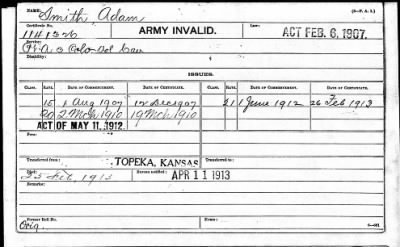 NAME: Smith Adam (S-P. A. L.)
Certificate No.: 1141526 ARMY INVALID. Law: ACT FEB. 6, 1907.
Service:
ISSUES.
CLASS. RATE. DATE OF COMMENCEMENT. DATE OF CERTIFICATE. CLASS. RATE. DATE OF COMMENCEMENT. DATE OF CERTIFICATE.
15 1 Aug 1907 12 Dec 1907 21 1 June 1912 26 Feb 1913
20 1910 19 1910
ACT OF MAY 11, 1912.
Transferred from TOPEKA, KANSAS Transferred to
Died: 25 Feb. 1913 Bureau notified: APR 11 1913
Remarks:
Former Roll No.
Orig.